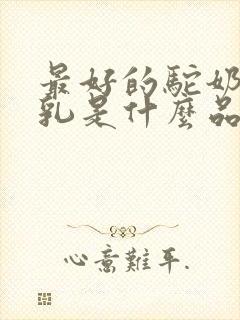 最好的駝奶
乳是什麼品
心意難平.